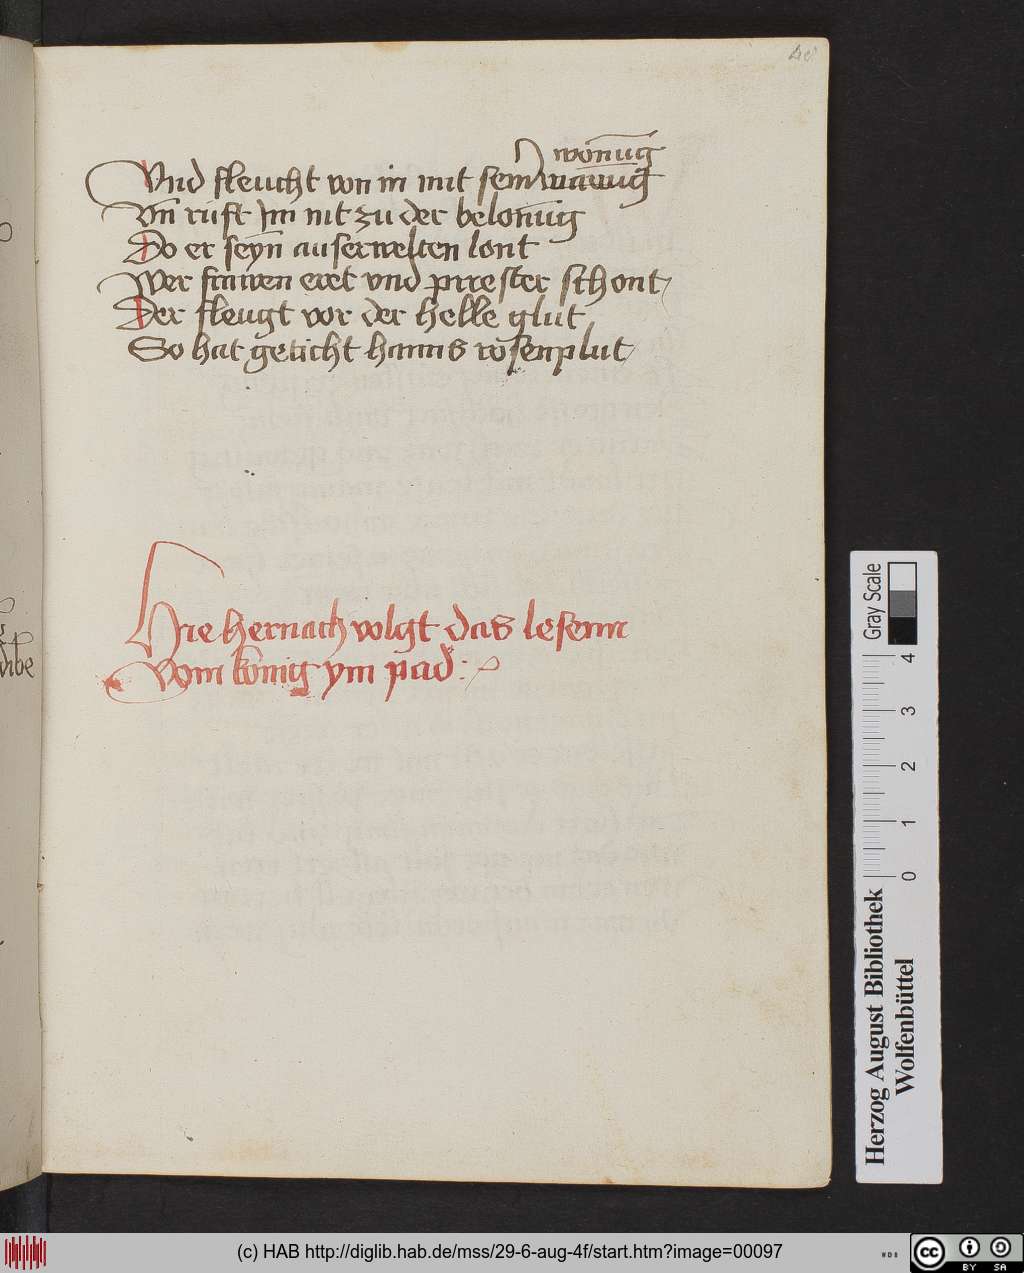 48
wonūg
Vnd fleucht von in mit sein
Vn̄ rüft Im nit zu der belonūg
Do er seyn̄ auserwelten lont
Wer frawen eret vnd prrester schont
Der fleugt vor der helle glut
So hat geticht hanns rosenplut
Hie hernach volgt das lesenn
Vom konig ym pad :
Gray Scale
4
3
2
1
0
Herzog August Bibliothek
Wolfenbüttel
(c) HAB http://diglib.hab.de/mss/29-6-aug-4f/start.htm?image=00097
WDB
cc
BY SA